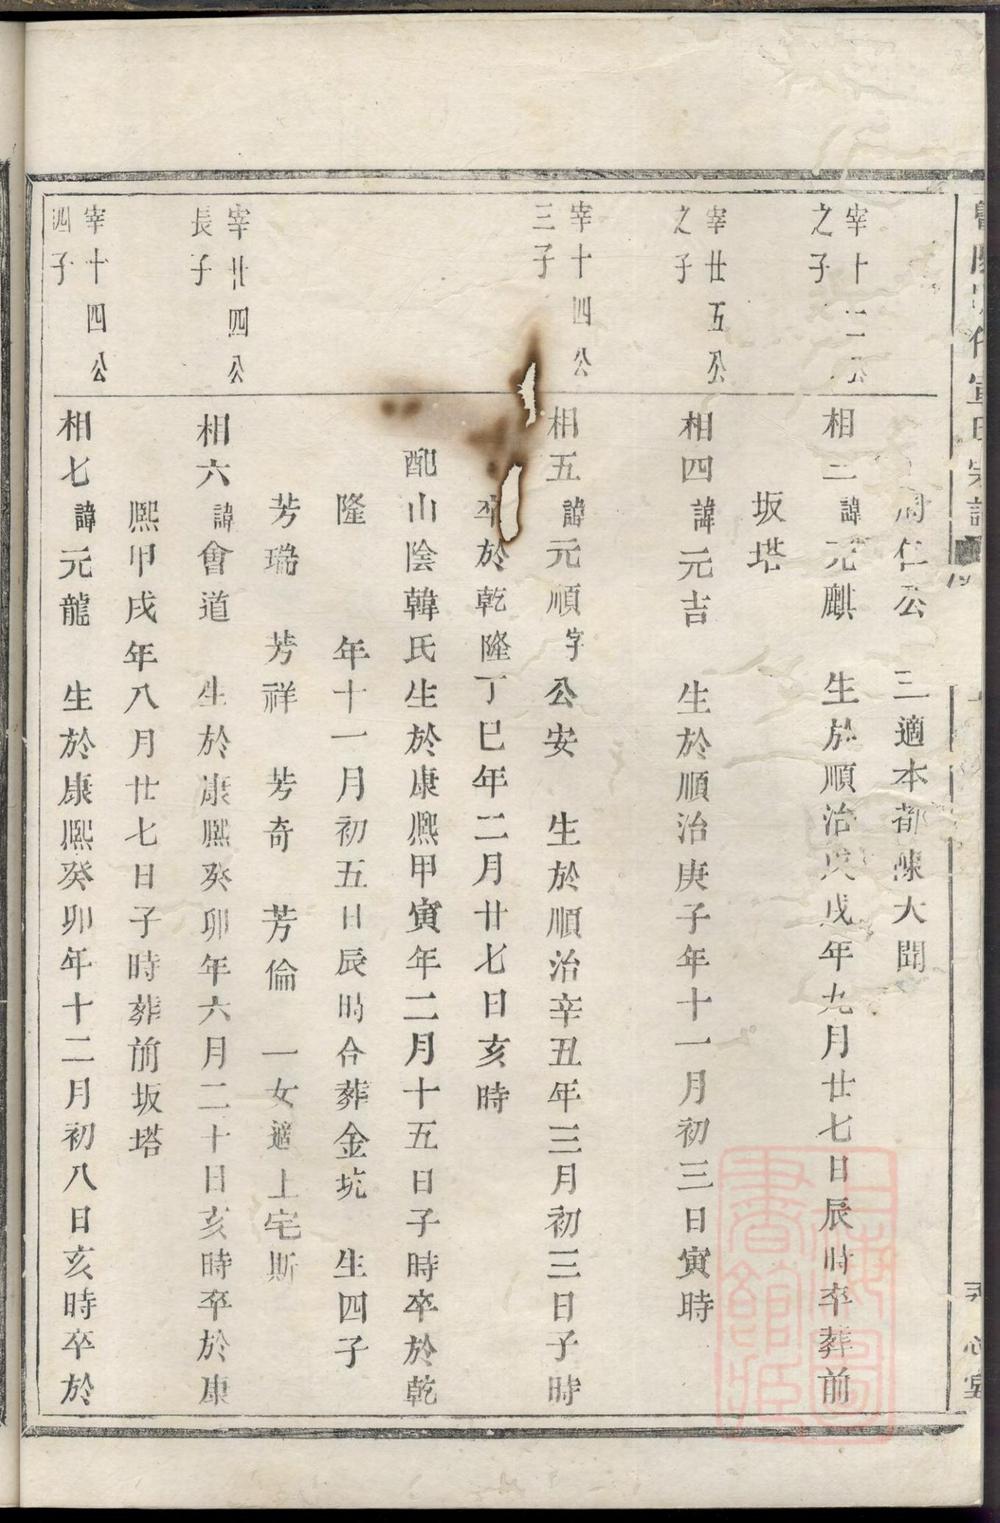 宰十二公
之子
宰廿五公
之子
宰十四公
三子
宰廿四公
長子
宰十四公
四子
周仁公 三適本都陳大聞
相三諱元麒 生於順治戊戌年九月廿七日辰時卒葬前
坂塔
相四諱元吉 生於順治庚子年十一月初三日寅時
相五諱元順字公安 生於順治辛丑年三月初三日子時
卒於乾隆丁巳年二月廿七日亥時
配山陰韓氏生於康熙甲寅年二月十五日子時卒於乾
隆 年十一月初五日辰時合葬金坑 生四子
芳瑞 芳祥 芳奇 芳倫 一女適上宅斯
相六諱會道 生於康熙癸卯年六月二十日亥時卒於康
熙甲戌年八月廿七日子時葬前坂塔
相七諱元龍 生於康熙癸卯年十二月初八日亥時卒於
上海圖書館藏